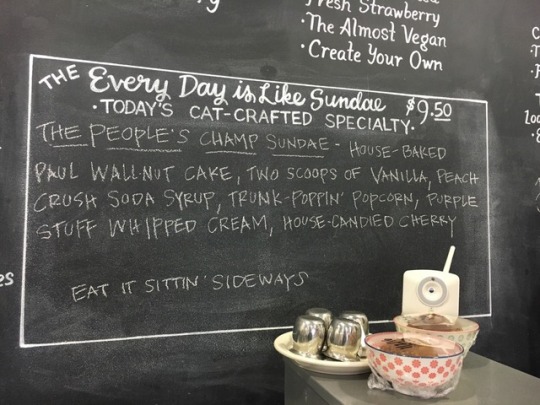 Fresh Strawberry
·The Almost Vegan
·Create Your Own
THE Every Day is Like Sundae $9.50
·TODAY'S CAT-CRAFTED SPECIALTY·
THE PEOPLE'S CHAMP SUNDAE - HOUSE-BAKED
PAUL WALL-NUT CAKE, TWO SCOOPS OF VANILLA, PEACH
CRUSH SODA SYRUP, TRUNK-POPPIN' POPCORN, PURPLE
STUFF WHIPPED CREAM, HOUSE-CANDIED CHERRY
EAT IT SITTIN' SIDEWAYS